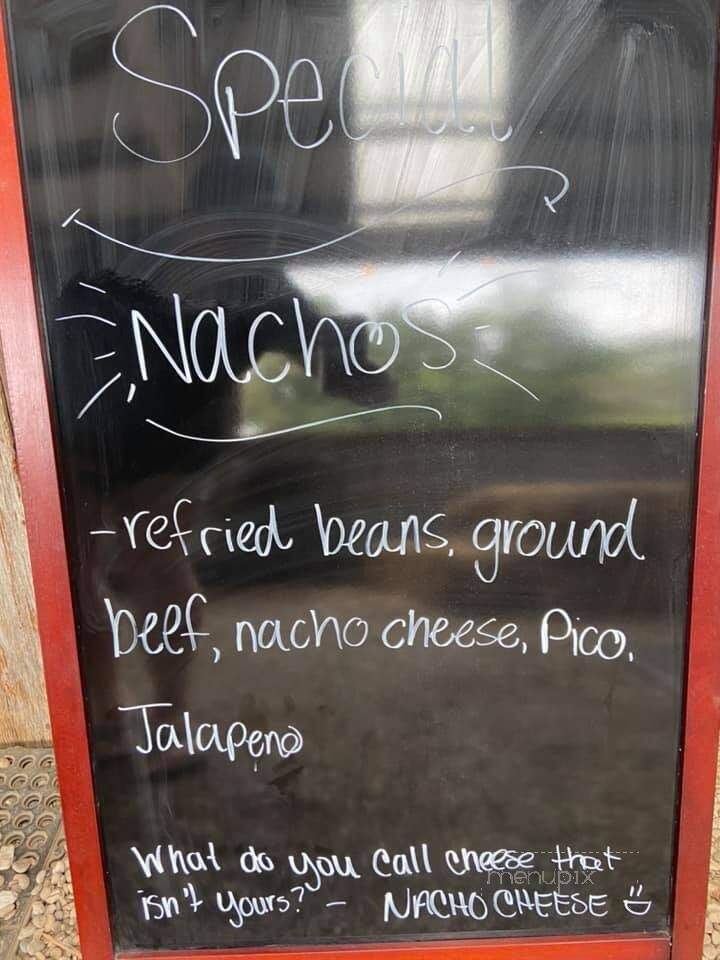 Special
Nachos
- refried beans, ground
beef, nacho cheese, Pico,
Jalapeno
What do you call cheese that
isn't yours? - NACHO CHEESE
menupix